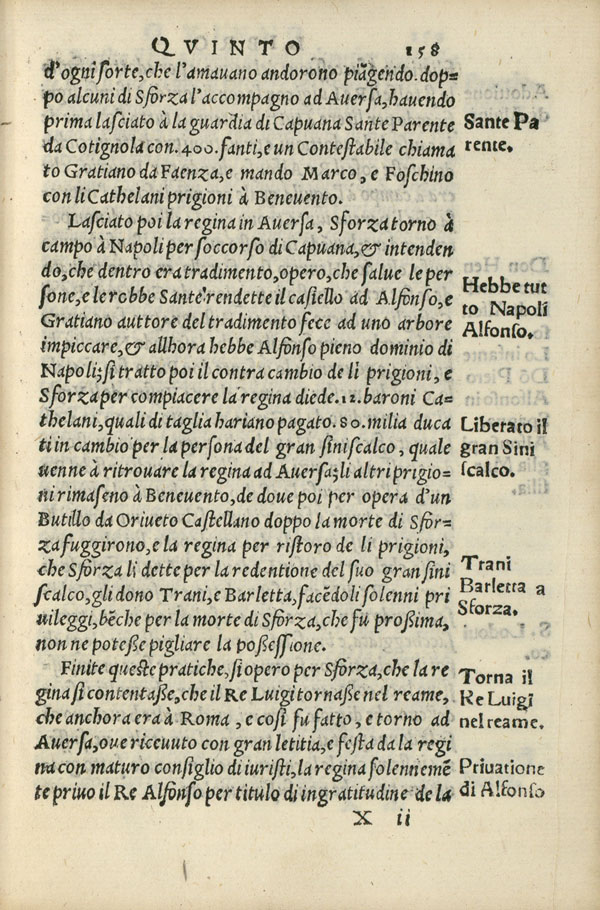 QVINTO 158
d'ogni sorte, che l'amauano andorono piãgendo. dop=
po alcuni di Sforza l'accompagno ad Auersa, hauendo
prima lasciato à la guardia di Capuana Sante Parente
da Cotignola con. 400. fanti, e un Contestabile chiama
to Gratiano da Faenza, e mando Marco, e Foschino
con li Cathelani prigioni à Beneuento.
Sante Pa
rente.
Lasciato poi la regina in Auersa, Sforza torno à
campo à Napoli per soccorso di Capuana, & intenden
do, che dentro era tradimento, opero, che salue le per
sone, e le robbe Sante rendette il castello ad Alfonso, e
Gratiano auttore del tradimento fece ad uno arbore
impiccare, & allhora hebbe Alfonso pieno dominio di
Napoli; si tratto poi il contra cambio de li prigioni, e
Sforza per compiacere la regina diede. 12. baroni Ca=
thelani, quali di taglia hariano pagato. 80. milia duca
ti in cambio per la persona del gran siniscalco, quale
uenne à ritrouare la regina ad Auersa; li altri prigio=
ni rimaseno à Beneuento, de doue poi per opera d'un
Butillo da Oriueto Castellano doppo la morte di Sfor=
za fuggirono, e la regina per ristoro de li prigioni,
che Sforza li dette per la redentione del suo gran sini
scalco, gli dono Trani, e Barletta, facẽdoli solenni pri
uileggi, bẽche per la morte di Sforza, che fu proßima,
non ne poteße pigliare la poßeßione.
Hebbe tut
to Napoli
Alfonso.
Liberato il
gran Sini
scalco.
Trani
Barletta a
Sforza.
Finite queste pratiche, si opero per Sforza, che la re
gina si contentaße, che il Re Luigi tornaße nel reame,
che anchora era à Roma, e cosi fu fatto, e torno ad
Auersa, oue riceuuto con gran letitia, e festa da la regi
na con maturo consiglio di iuristi, la regina solennemẽ
te priuo il Re Alfonso per titulo di ingratitudine de la
Torna il
Re Luigi
nel reame.
Priuatione
di Alfonso
X ii